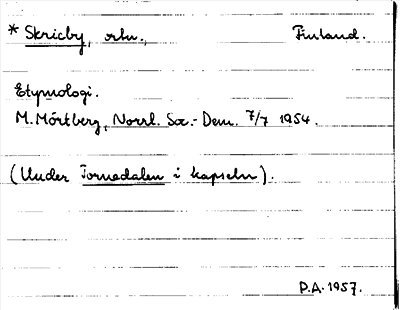 * Skricby, okn., Finland.
Etymologi.
M. Mörtberg, Norrl. Soc.-Dem. 7/7 1954.
(Under Tornedalen i kapseln).
P.A. 1957.